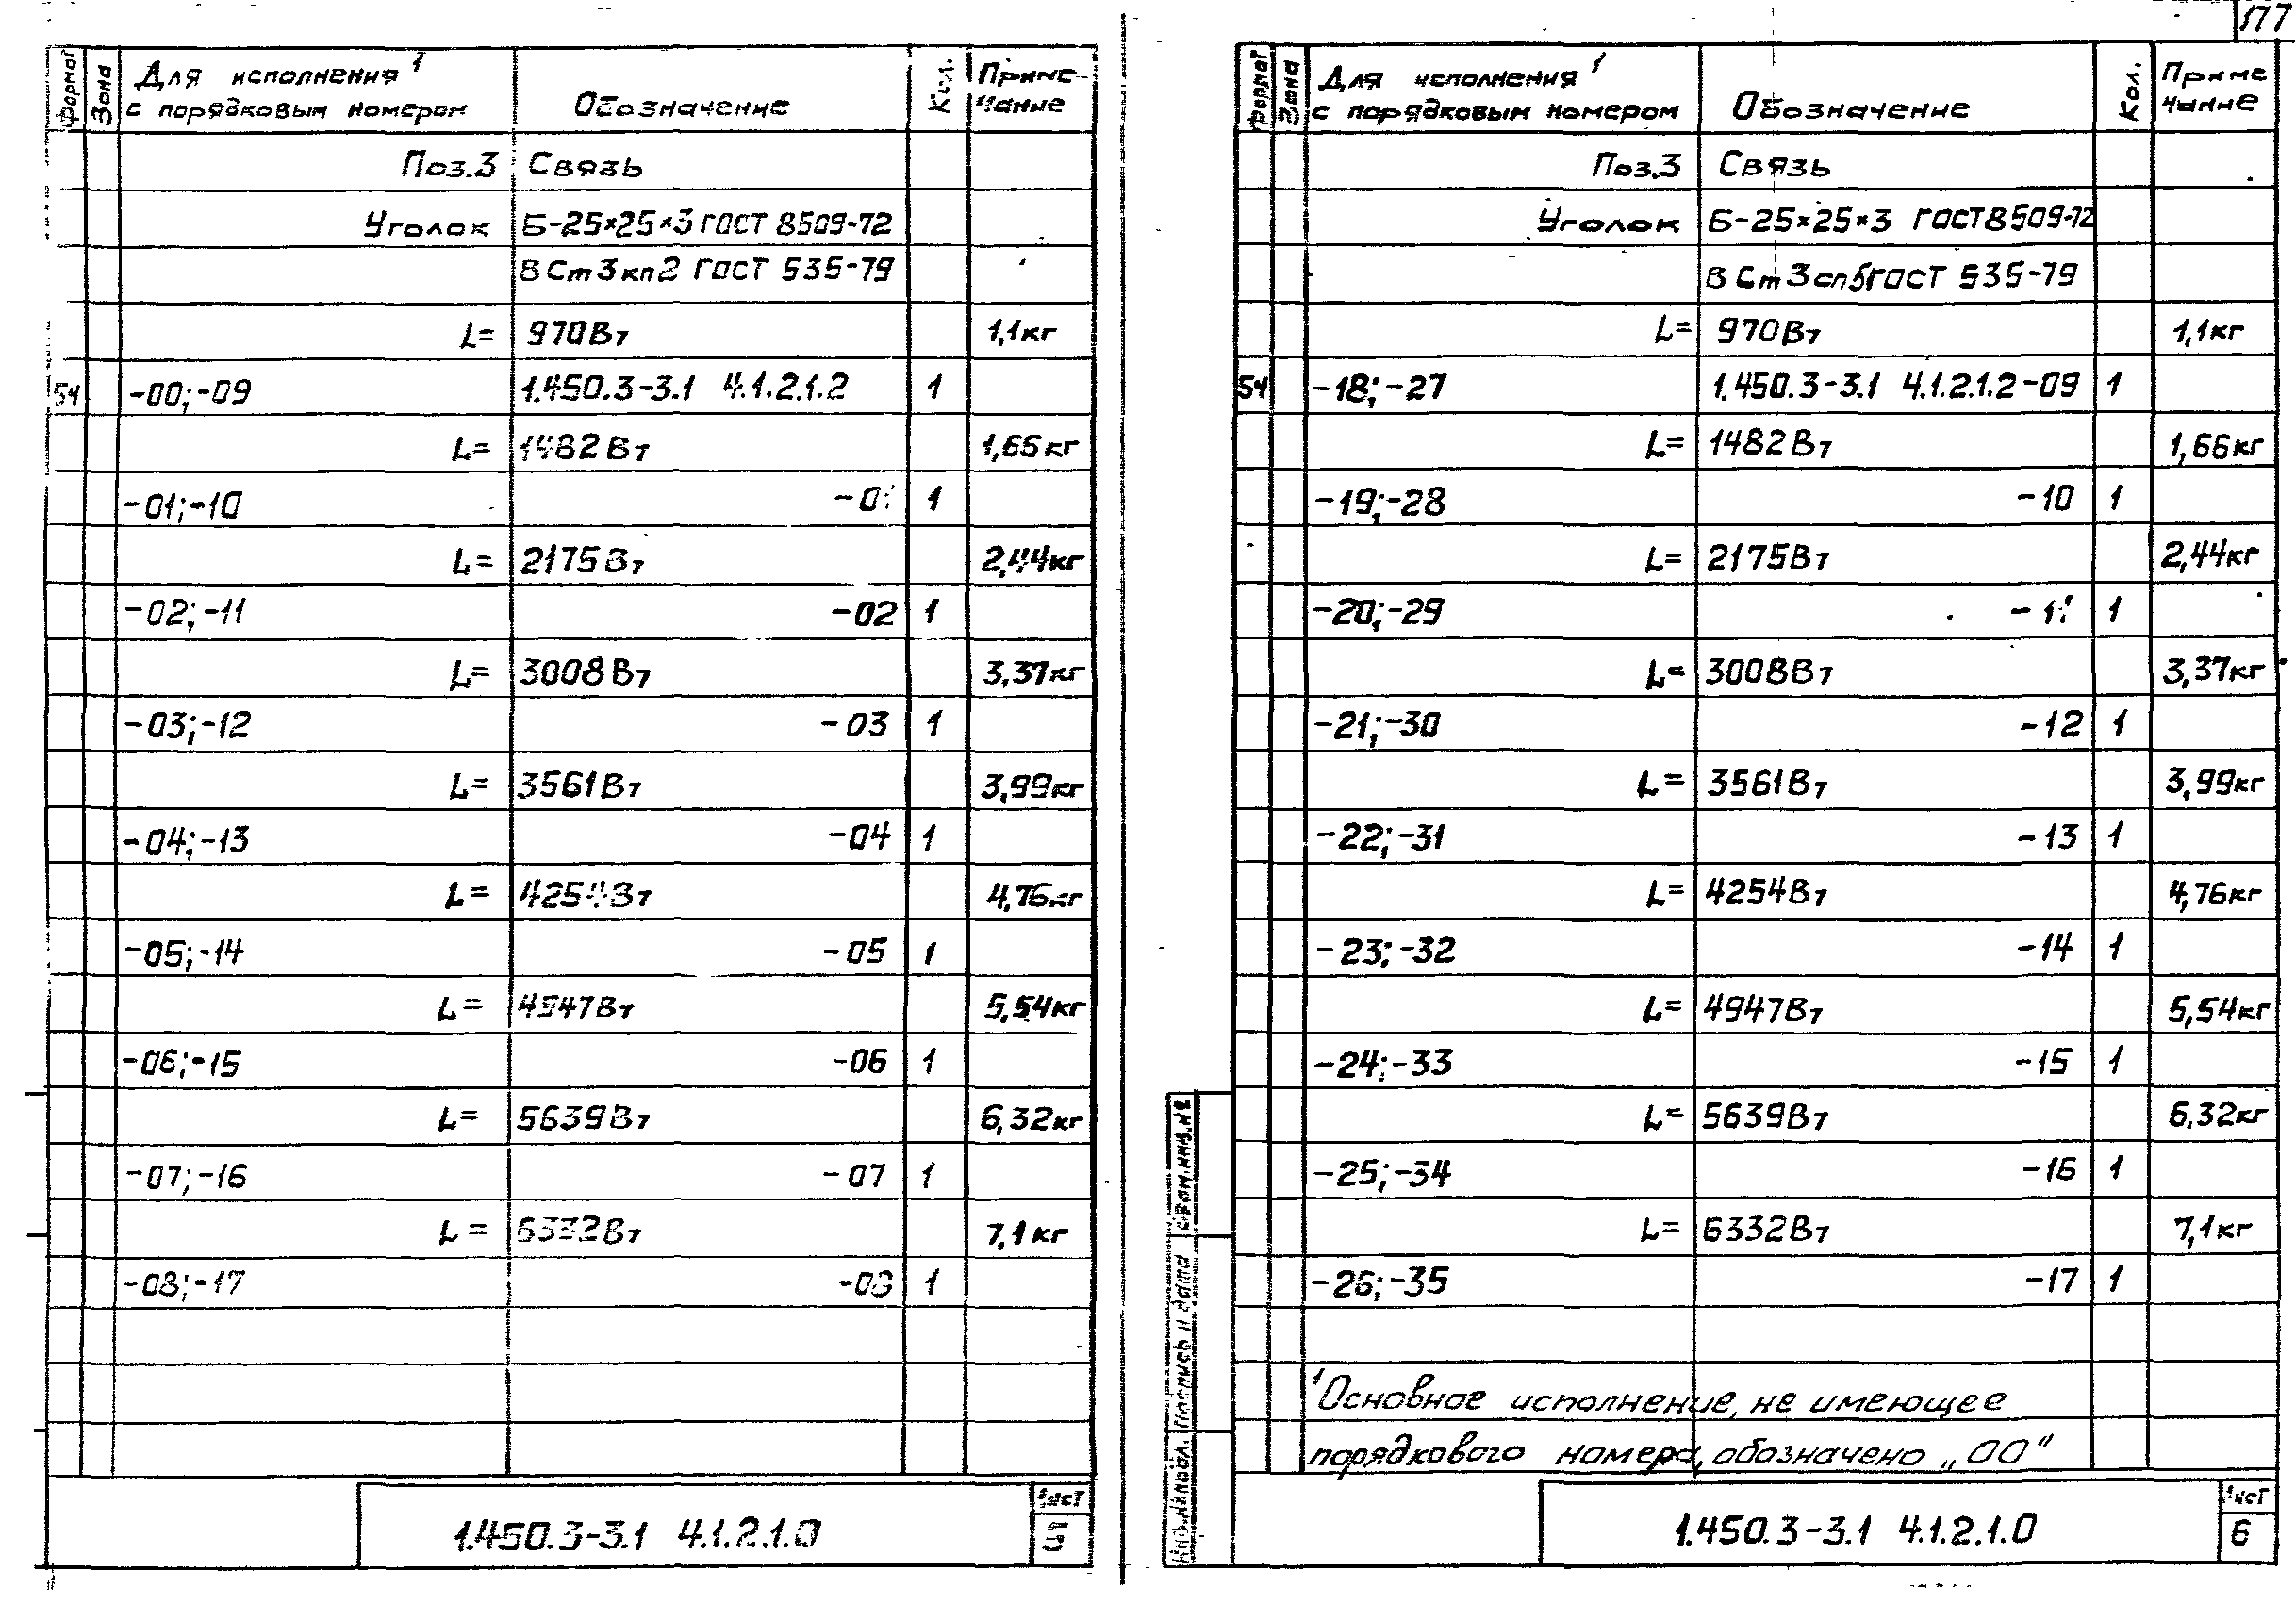 177
Формат Зона Для исполнения¹ с порядковым номером Обозначение Кол. Примечание
Поз.3 Связь
Уголок Б-25×25×3 ГОСТ 8509-72
ВСт3кп2 ГОСТ 535-79
L= 970Вт 1,1кг
Б4 -00;-09 1.450.3-3.1 4.1.2.1.2 1
L= 1482Вт 1,66кг
-01;-10 -01 1
L= 2175Вт 2,44кг
-02;-11 -02 1
L= 3008Вт 3,37кг
-03;-12 -03 1
L= 3561Вт 3,99кг
-04;-13 -04 1
L= 4254Вт 4,76кг
-05;-14 -05 1
L= 4947Вт 5,54кг
-06;-15 -06 1
L= 5639Вт 6,32кг
-07;-16 -07 1
L= 6332Вт 7,1кг
-08;-17 -08 1
1.450.3-3.1 4.1.2.1.0
Лист
5
Формат Зона Для исполнения¹ с порядковым номером Обозначение Кол. Примечание
Поз.3 Связь
Уголок Б-25×25×3 ГОСТ 8509-72
ВСт3сп5 ГОСТ 535-79
L= 970Вт 1,1кг
Б4 -18;-27 1.450.3-3.1 4.1.2.1.2-09 1
L= 1482Вт 1,66кг
-19;-28 -10 1
L= 2175Вт 2,44кг
-20;-29 -11 1
L= 3008Вт 3,37кг
-21;-30 -12 1
L= 3561Вт 3,99кг
-22;-31 -13 1
L= 4254Вт 4,76кг
-23;-32 -14 1
L= 4947Вт 5,54кг
-24;-33 -15 1
L= 5639Вт 6,32кг
-25;-34 -16 1
L= 6332Вт 7,1кг
-26;-35 -17 1
¹Основное исполнение, не имеющее
порядкового номера, обозначено „00“
Инв.№подл. Подпись и дата Взам.инв.№
1.450.3-3.1 4.1.2.1.0
Лист
6